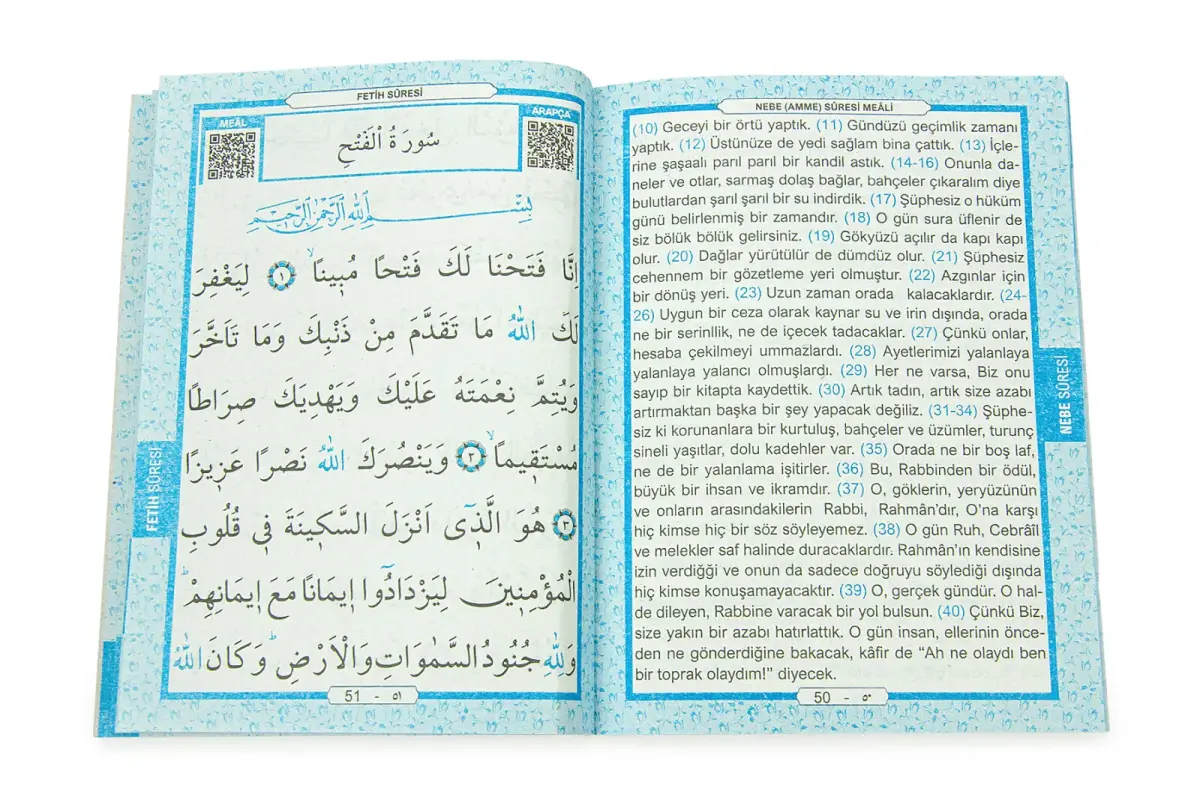 NEBE (AMME) SÛRESİ MEÂLİ
(10) Geceyi bir örtü yaptık. (11) Gündüzü geçimlik zamanı
yaptık. (12) Üstünüze de yedi sağlam bina çattık. (13) İçle-
rine şaşaalı parıl parıl bir kandil astık. (14-16) Onunla da-
neler ve otlar, sarmaş dolaş bağlar, bahçeler çıkaralım diye
bulutlardan şarıl şarıl bir su indirdik. (17) Şüphesiz o hüküm
günü belirlenmiş bir zamandır. (18) O gün sura üflenir de
siz bölük bölük gelirsiniz. (19) Gökyüzü açılır da kapı kapı
olur. (20) Dağlar yürütülür de dümdüz olur. (21) Şüphesiz
cehennem bir gözetleme yeri olmuştur. (22) Azgınlar için
bir dönüş yeri. (23) Uzun zaman orada kalacaklardır. (24-
26) Uygun bir ceza olarak kaynar su ve irin dışında, orada
ne bir serinllik, ne de içecek tadacaklar. (27) Çünkü onlar,
hesaba çekilmeyi ummazlardı. (28) Ayetlerimizi yalanlaya
yalanlaya yalancı olmuşlardı. (29) Her ne varsa, Biz onu
sayıp bir kitapta kaydettik. (30) Artık tadın, artık size azabı
artırmaktan başka bir şey yapacak değiliz. (31-34) Şüphe-
siz ki korunanlara bir kurtuluş, bahçeler ve üzümler, turunç
sineli yaşıtlar, dolu kadehler var. (35) Orada ne bir boş laf,
ne de bir yalanlama işitirler. (36) Bu, Rabbinden bir ödül,
büyük bir ihsan ve ikramdır. (37) O, göklerin, yeryüzünün
ve onların arasındakilerin Rabbi, Rahmân'dır, O'na karşı
hiç kimse hiç bir söz söyleyemez. (38) O gün Ruh, Cebrâîl
ve melekler saf halinde duracaklardır. Rahmân'ın kendisine
izin verdiğği ve onun da sadece doğruyu söylediği dışında
hiç kimse konuşamayacaktır. (39) O, gerçek gündür. O hal-
de dileyen, Rabbine varacak bir yol bulsun. (40) Çünkü Biz,
size yakın bir azabı hatırlattık. O gün insan, ellerinin önce-
den ne gönderdiğine bakacak, kâfir de “Ah ne olaydı ben
bir toprak olaydım!” diyecek.
50 - ٥٠
NEBE SÛRESİ
FETİH SÛRESİ
MEÂL
ARAPÇA
سُورَةُ الْفَتْحِ
بِسْمِ اللهِ الرَّحْمٰنِ الرَّحِيمِ
اِنَّا فَتَحْنَا لَكَ فَتْحًا مُبٖينًاۙ ١ لِيَغْفِرَ
لَكَ اللهُ مَا تَقَدَّمَ مِنْ ذَنْبِكَ وَمَا تَاَخَّرَ
وَيُتِمَّ نِعْمَتَهُ عَلَيْكَ وَيَهْدِيَكَ صِرَاطًا
مُسْتَقٖيمًاۙ ٢ وَيَنْصُرَكَ اللهُ نَصْرًا عَزٖيزًا
٣ هُوَ الَّذٖٓى اَنْزَلَ السَّكٖينَةَ فٖى قُلُوبِ
الْمُؤْمِنٖينَ لِيَزْدَادُٓوا اٖيمَانًا مَعَ اٖيمَانِهِمْؕ
وَلِلهِ جُنُودُ السَّمٰوَاتِ وَالْاَرْضِؕ وَكَانَ اللهُ
51 - ٥١
FETİH SÛRESİ